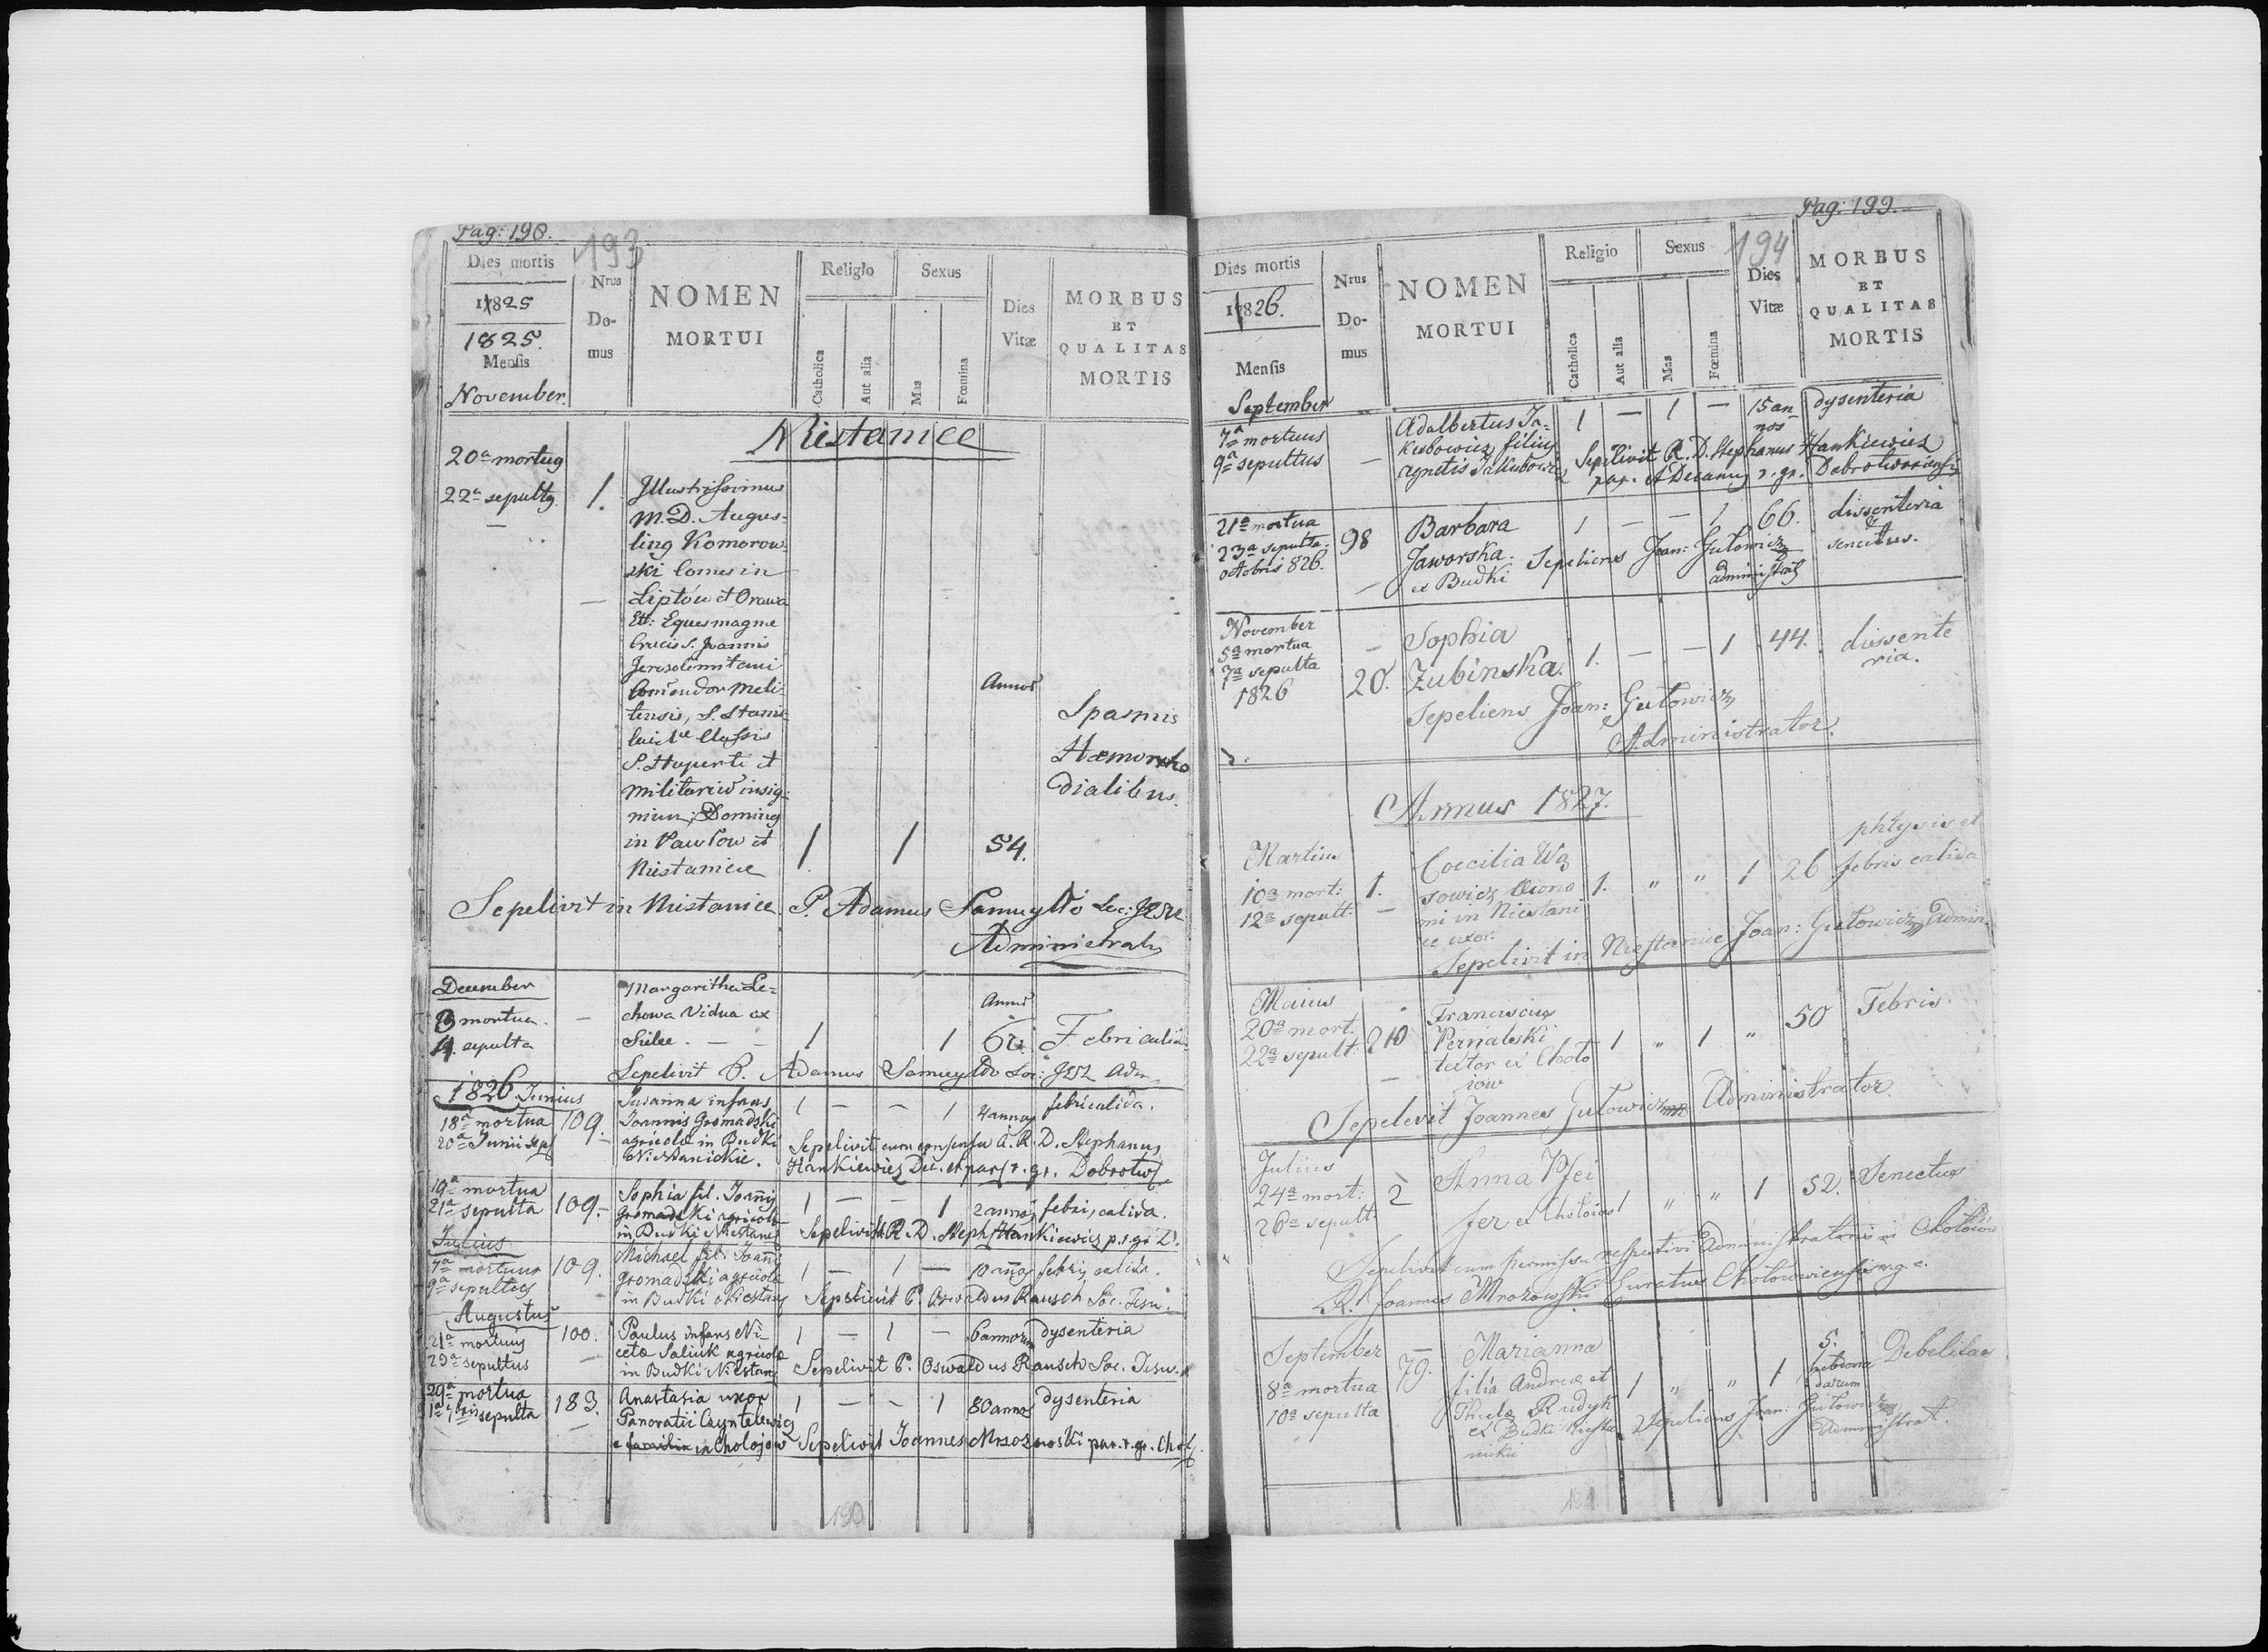 Pag: 198.
193
Dies mortis
1825
1825.
Mensis
November.
Nrus
Do-
mus
NOMEN
MORTUI
Religio
Sexus
Catholica
Aut alia
Mas
Fœmina
Dies
Vitæ
MORBUS
ET
QUALITAS
MORTIS
Niestanice
20a mortug
22a sepultg
1.
Illustrissimus
M. D. Augus-
ling Komorow-
ski Comes in
Liptów et Orawa
Ett: Eques magnæ
Crucis S. Joannis
Jerosolimitani
Comendor Meli-
tensis, S. Stanis-
lai 1æ Classis
S. Huperti et
militariu insig-
nium; Doming
in Pawłow et
Niestanice
1
1
Annos
54.
Spasmis
Hæmorrho
dialibus.
Sepelivit in Niestanice P. Adamus Samuyłło Soc: JESU
Administrator
December
mortua
sepulta
Margaritha Le-
chowa Vidua ex
Sielec.
1
1
Annos
Febri calida
Sepelivit P. Adamus Samuyłło Soc: JESU Adm.
1826. Junius
18a mortua
20a Junii sep
109.
Susanna infans
Joannis Gromadzki
agricolæ in Budki
Niestanickie.
1 — — 1
4 annos
febri calida.
Sepelivit cum consensu A. R. D. Stephanus
Hankiewicz Dec. et par. r. gr. Dobrotw
19a mortua
21a sepulta
109.
Sophia fil. Joanis
Gromadzki agricolæ
in Budki Niestan
1 — — 1
2 annos
febri calida.
Sepelivit R. D. Steph. Hankiewicz p. r. gr. D.
Julius
7a mortuus
9a sepultus
109.
Michael fil. Joani
Gromadzki agricolæ
in Budki Niestan
1 — 1 —
10 anos
febri calida.
Sepelivit P. Oswaldus Rausch Soc. Jesu.
Augustus
21a mortuus
23a sepultus
100.
Paulus infans Ni-
cetæ Saliuk agricolæ
in Budki Niestan
1 — 1 —
6 annorum
dysenteria
Sepelivit P. Oswaldus Rausch Soc. Jesu.
29a mortua
1a 7bris sepulta
183.
Anastasia uxor
Pancratii
in Cholojow
1 — — 1
80 annos
dysenteria
Sepelivit Joannes Mrozowski par. r. gr. Choł
190
Pag: 199.
194
Dies mortis
1826.
Mensis
September
Nrus
Do-
mus
NOMEN
MORTUI
Religio
Sexus
Catholica
Aut alia
Mas
Fœmina
Dies
Vitæ
MORBUS
ET
QUALITAS
MORTIS
7a mortuus
9a sepultus
—
Adalbertus Ja-
kubowicz filius
Agnetis Jakubowicz
1 — 1 —
15 an-
nos
dysenteria
Sepelivit R. D. Stephanus Hankiewicz
par. et Decanus r. gr. Dobrotworiensis
21a mortua
23a sepulta
octobris 826.
98
Barbara
Jaworska.
ex Budki
1 — — 1
66.
dissenteria
et
senectus.
Sepeliens Joan: Gutowicz
administrat
November
5a mortua
7a sepulta
1826
20.
Sophia
Zubinska.
1. — — 1
44.
dissente
ria.
Sepeliens Joan: Gutowicz
Administrator.
Annus 1827.
Martius
10a mort:
12a sepult:
1.
Coecilia Wą
sowicz Oeono
mi in Niestani
ce uxor.
1. " " 1
26
phtysis et
febris calida
Sepelivit in Niestanice Joan: Gutowicz Admin.
Maius
20a mort.
22a sepult:
210
Franciscus
Pernalski
ex Choło
iow
1 " 1 "
50
Febris.
Sepelevit Joannes Gutowicz Administrator.
Julius
24a mort:
26a sepult:
2
Anna Pfei
fer ex Chołoiow
1 " " 1
52.
Senectus
Sepelivit cum permissu respectivi Administratoris in Chołoiow
R. Joannes Mrozowski Curatus Chołoiowiensis r. g. c.
September
8a mortua
10a sepulta
79.
Marianna
filia Andreæ et
Theclæ Rudyk
ex Budki Niesta
nickie
1 " " 1
5.
hebdoma
darum
Debelitas
Sepeliens Joan: Gutowicz
Administrat.
191